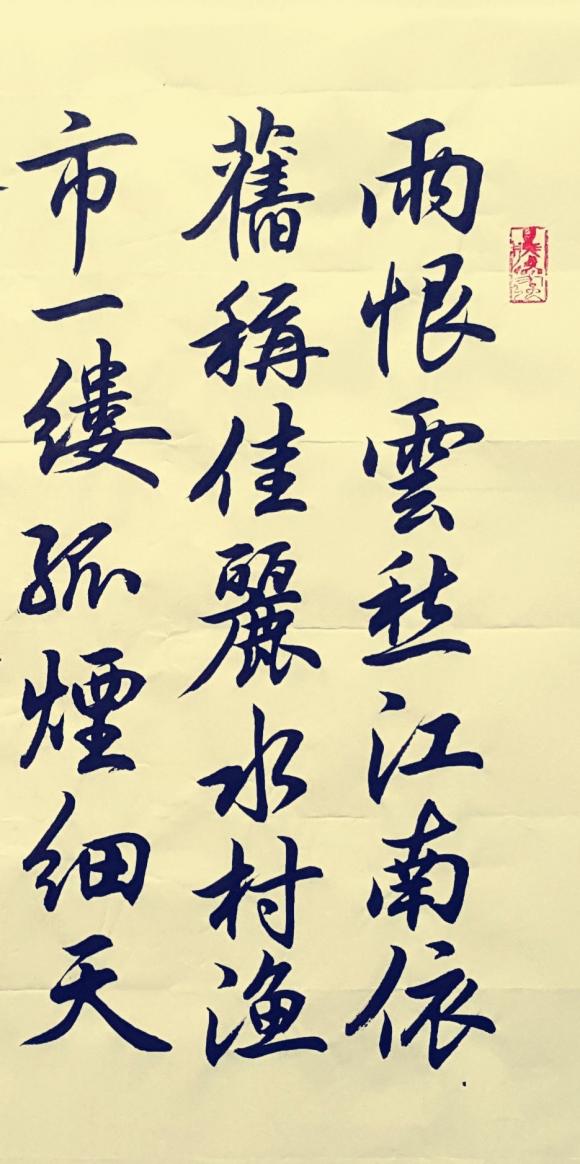 雨恨雲愁江南依
舊稱佳麗水村渔
市一缕孤煙细天